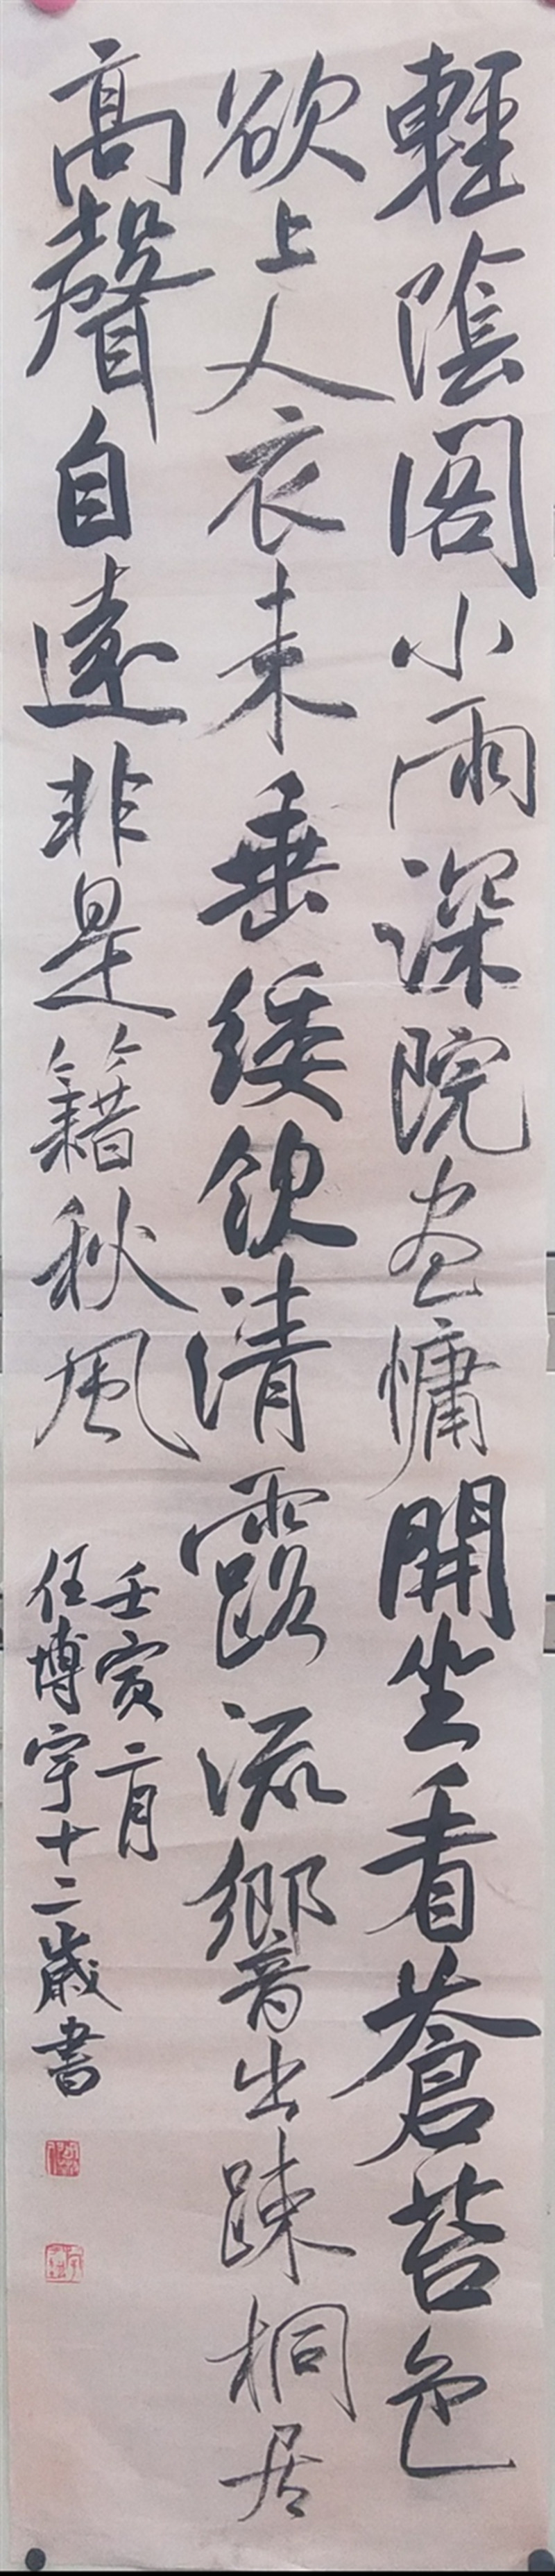 輕陰閣小雨深院晝慵開坐看蒼苔色
欲上人衣来垂緌飲清露流響出疎桐居
高聲自遠非是籍秋風
壬寅二月
任博宇十二歲書